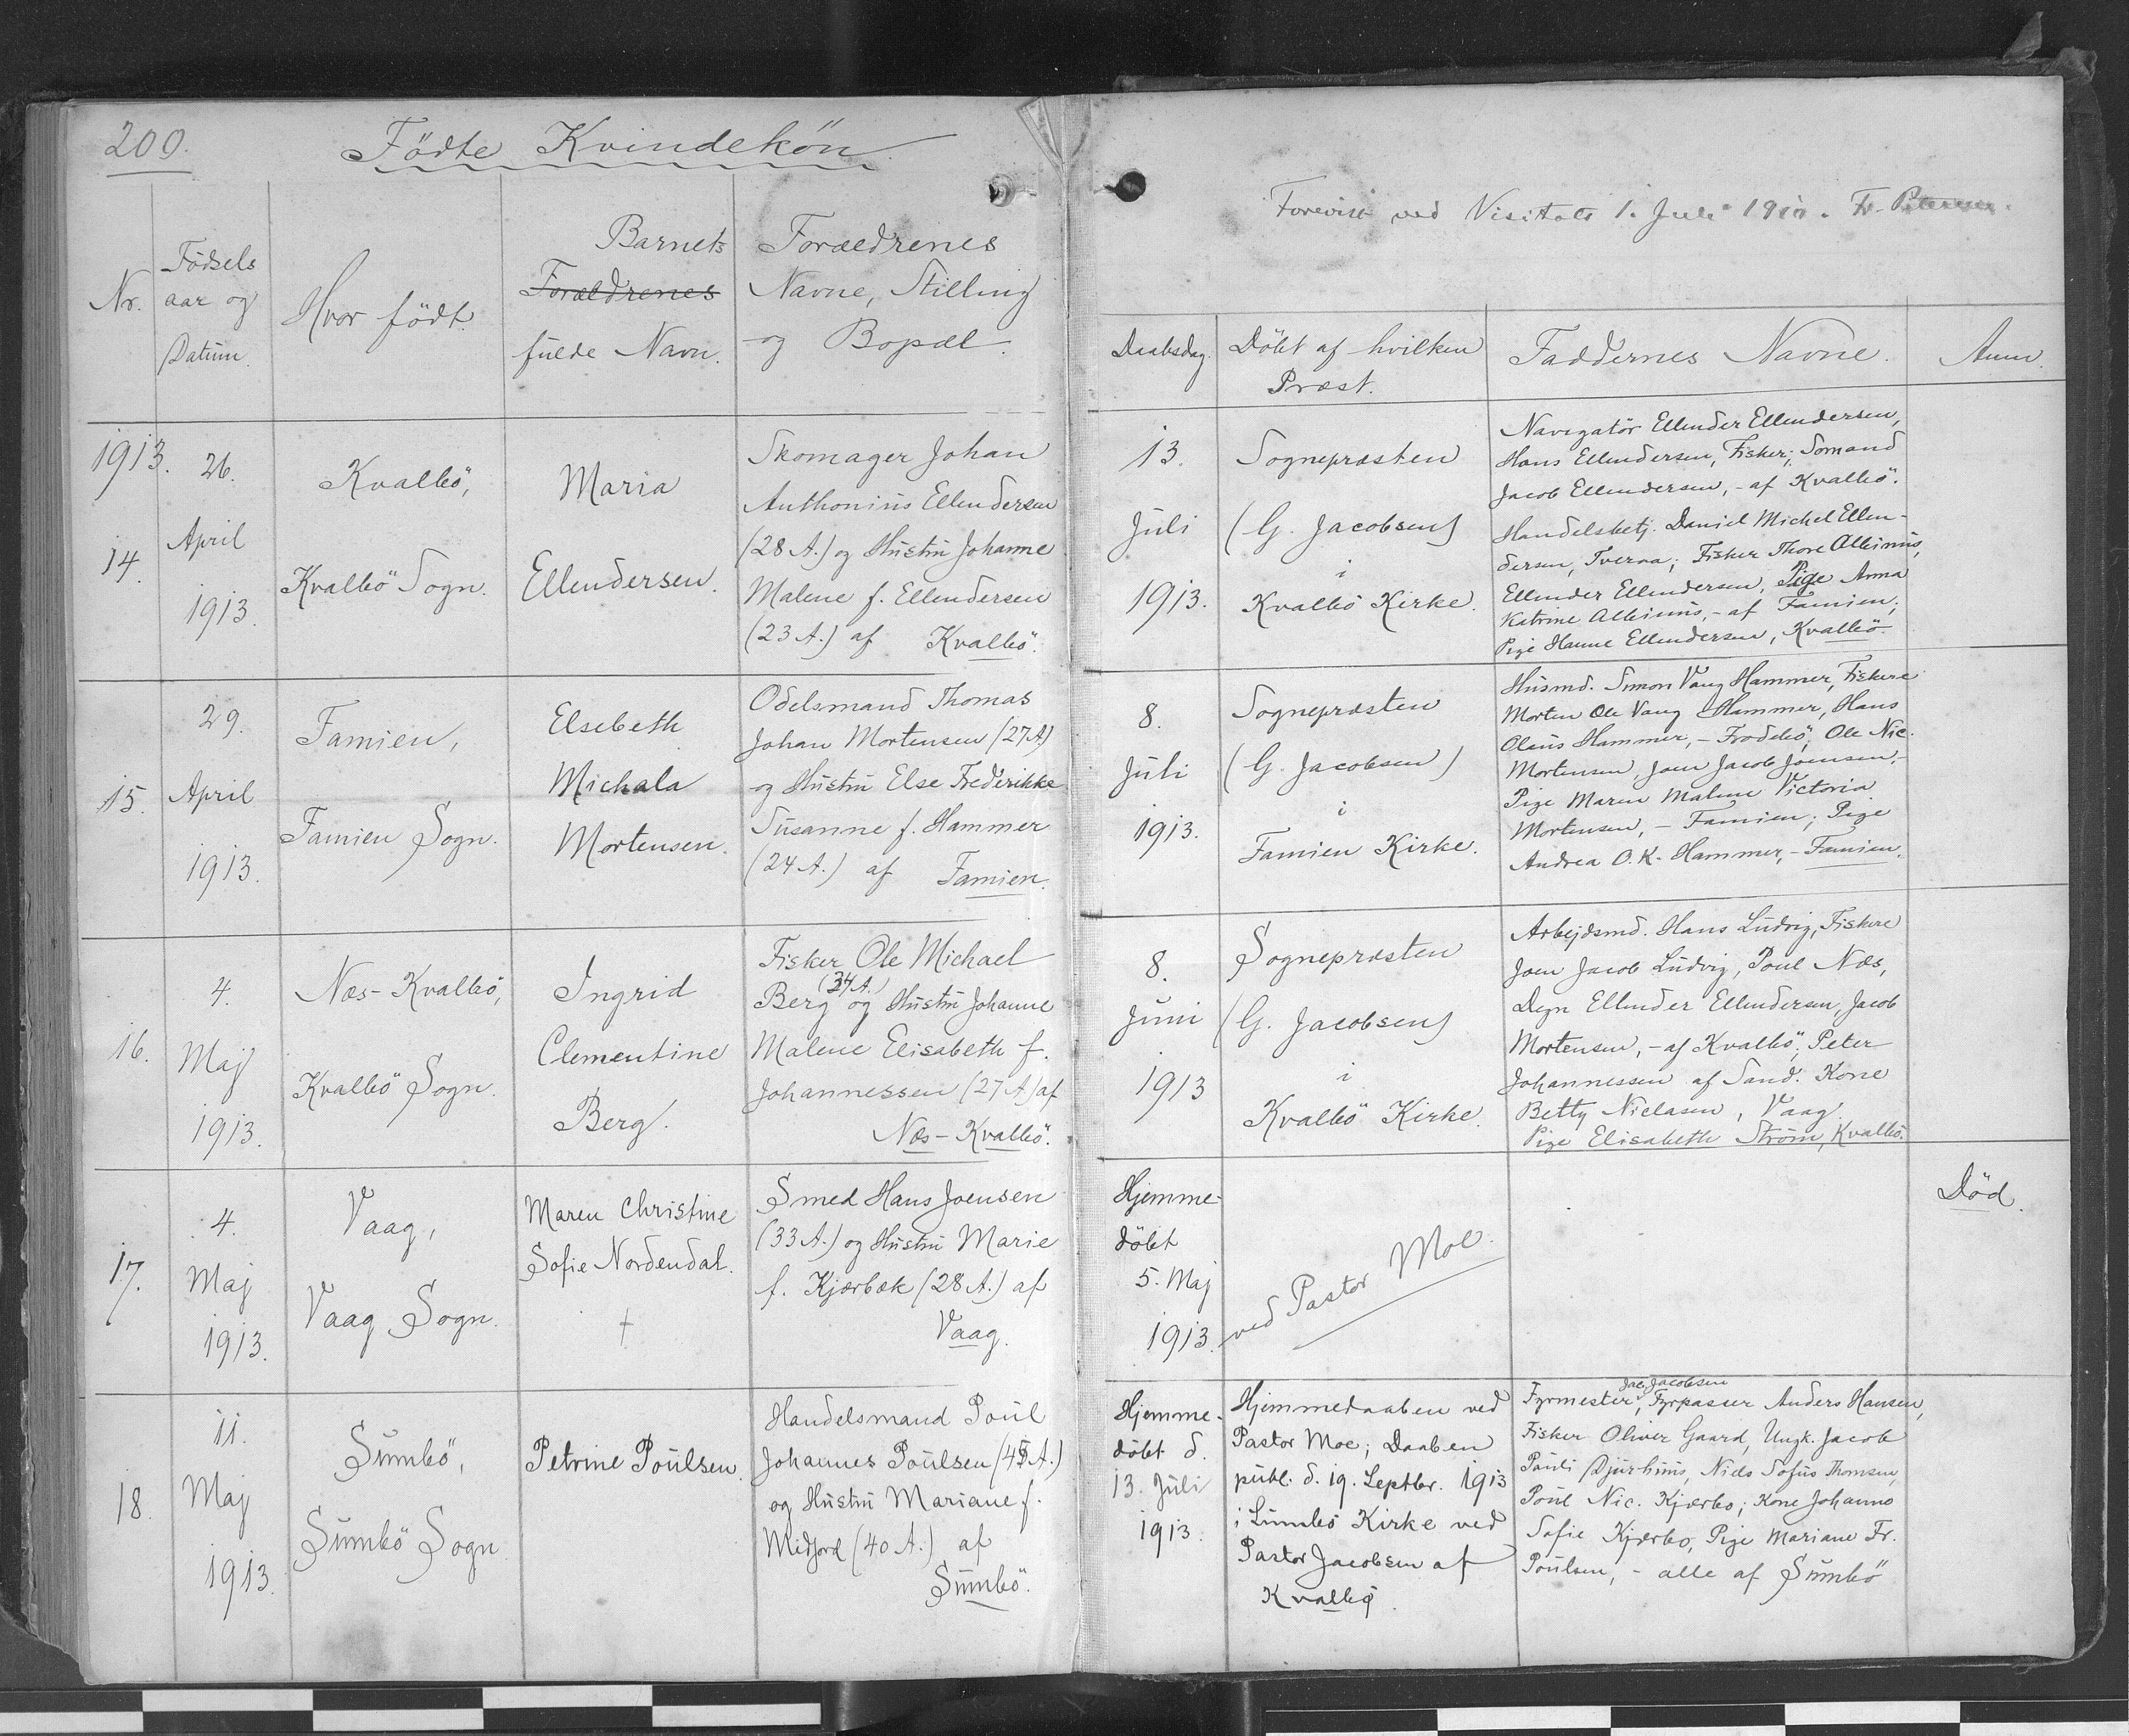 200.
Födte Kvindekön.
Nr.
Födsels
aar og
Datum.
Hvor födt.
Barnets
Forældrenes
fulde Navn.
Forældrenes
Navne, Stilling
og Bopæl.
1913.
14.
26.
April
1913.
Kvalbö,
Kvalbö Sogn.
Maria
Ellendersen.
Skomager Johan
Anthonius Ellendersen
(28 A.) og Hustru Johanne
Malene f. Ellendersen
(23 A.) af Kvalbö.
15.
29.
April
1913.
Famien,
Famien Sogn.
Elsebeth
Michala
Mortensen.
Odelsmand Thomas
Johan Mortensen (27 A.)
og Hustru Else Frederikke
Susanne f. Hammer
(24 A.) af Famien.
16.
4.
Maj
1913.
Næs-Kvalbö,
Kvalbö Sogn.
Ingrid
Clementine
Berg.
Fisker Ole Michael
(34 A.)
Berg og Hustru Johanne
Malene Elisabeth f.
Johannessen (27 A.) af
Næs-Kvalbö.
17.
4.
Maj
1913.
Vaag,
Vaag Sogn.
Maren Christine
Sofie Nordendal.
†
Smed Hans Joensen
(33 A.) og Hustru Marie
f. Kjærbæk (28 A.) af
Vaag.
18.
11.
Maj
1913.
Sumbö,
Sumbö Sogn
Petrine Poulsen.
Handelsmand Poul
Johannes Poulsen (45 A.)
og Hustru Mariane f.
Midjord (40 A.) af
Sumbö.
Forevist ved Visitats 1. Juli 1910. Fr. Petersen.
Daabsdag.
Döbt af hvilken
Præst.
Faddernes Navne.
Anm.
13.
Juli
1913.
Sognepræsten
(G. Jacobsen)
i
Kvalbö Kirke.
Navigatör Ellender Ellendersen,
Hans Ellendersen, Fisker; Sömand
Jacob Ellendersen, - af Kvalbö.
Handelsbetj. Daniel Michel Ellen-
dersen, Tveraa; Fisker Thore Albinus,
Ellender Ellendersen, Pige Anna
Katrine Albinus, - af Famien;
Pige Hanne Ellendersen, Kvalbö.
8.
Juli
1913.
Sognepræsten
(G. Jacobsen)
i
Famien Kirke.
Husmd. Simon Vang Hammer, Fiskere
Morten Ole Vang Hammer, Hans
Olaus Hammer, - Frodebö, Ole Nic.
Mortensen, Joen Jacob Joensen,-
Pige Maren Malene Victoria
Mortensen, - Famien; Pige
Andrea O. K. Hammer, - Famien.
8.
Juni
1913
Sognepræsten
(G. Jacobsen)
i
Kvalbö Kirke.
Arbejdsmd. Hans Ludvig, Fiskere
Joen Jacob Ludvig, Poul Næs,
Degn Ellender Ellendersen, Jacob
Mortensen, - af Kvalbö; Peter
Johannessen af Sand. Kone
Betty Niclasen, Vaag.
Pige Elisabeth Ström, Kvalbö.
Hjemme-
döbt
5. Maj
1913.
ved Pastor Moe.
Död.
Hjemme-
döbt d.
13. Juli
1913.
Hjemmedaaben ved
Pastor Moe; Daaben
publ. d. 19. Septbr. 1913
i Sumbö Kirke ved
Pastor Jacobsen af
Kvalbö.
Jacobsen
Fyrmester, Fyrpasser Anders Hansen,
Fisker Oliver Gaard, Ungk. Jacob
Pauli Djurhuus, Niels Sofus Thomsen,
Poul Nic. Kjærbo; Kone Johanne
Sofie Kjærbo, Pige Mariane Fr.
Poulsen, - alle af Sumbö